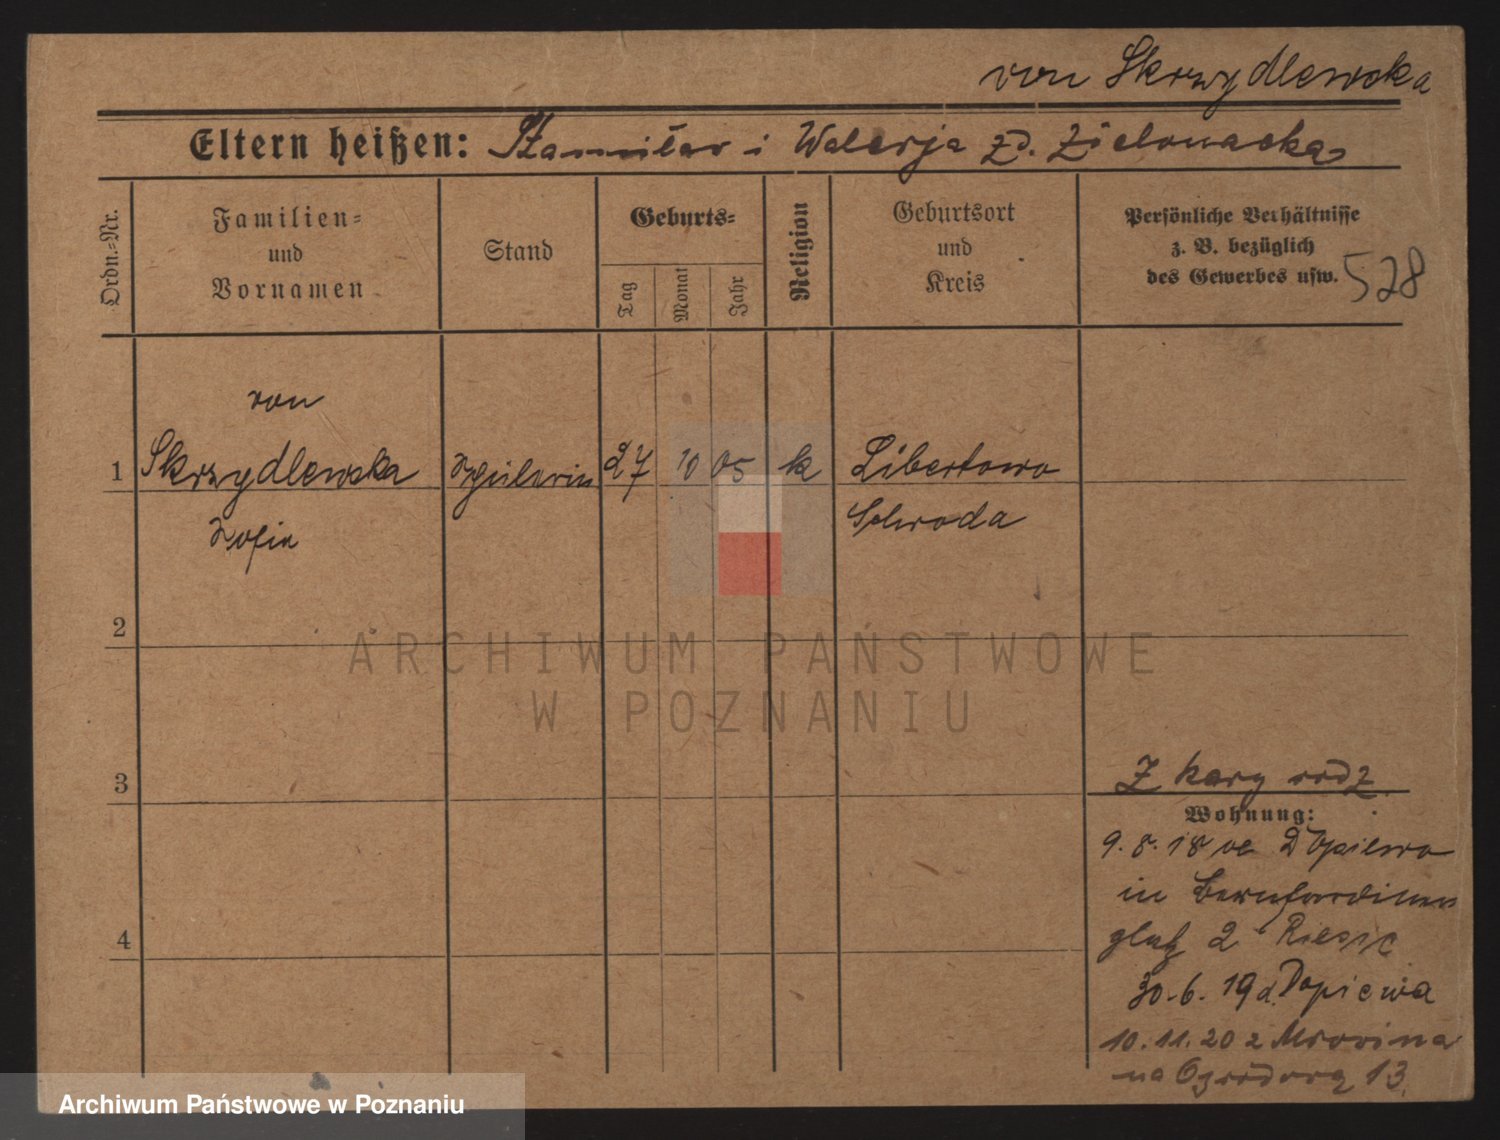 von Skrzydlewska
Eltern heißen: Stanisław i Walerja zd. Zielonacka
Ordn.-Nr.
Familien-
und
Vornamen
Stand
Geburts-
Tag
Monat
Jahr
Religion
Geburtsort
und
Kreis
Persönliche Verhältnisse
z. B. bezüglich
des Gewerbes usw.
528
von
1 Skrzydlewska 27 10 05 k Libertowo
Zofia Schroda
2
3
4
Z kary
Wohnung:
9. 8. 18 Dopiewo
in Bernhardiner
2
30. 6. 19 d. Dopiewa
10. 11. 20 z Mrowina
na Ogrodową 13.
ARCHIWUM PAŃSTWOWE
W POZNANIU
Archiwum Państwowe w Poznaniu